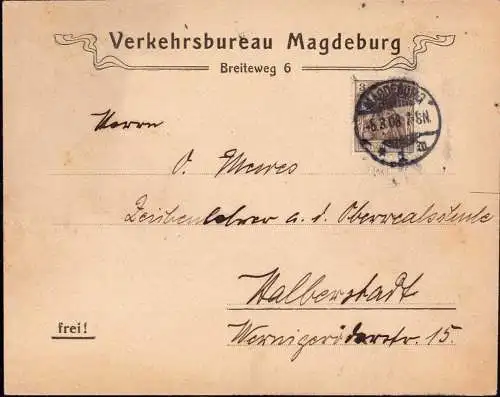 Verkehrsbureau Magdeburg
Breiteweg 6
3
MAGDEBURG
6.3.08. 7-8N.
Herrn
O. Mewes
Zeichenlehrer a. d. Oberrealschule
Halberstadt
Wernigeröderstr. 15.
frei!